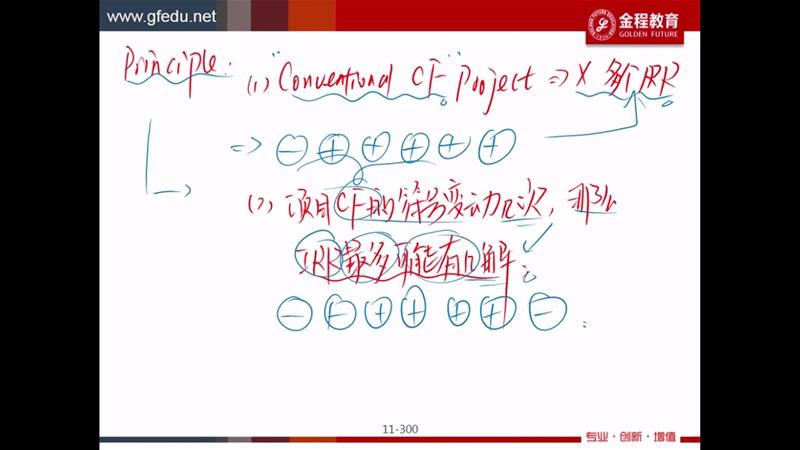 www.gfedu.net
金程教育
GOLDEN FUTURE
Principle: (1) "Conventional CF" Project => X 多个IRR
=> - + + + + +
(2) 项目CF的符号变动几次, 那么
IRR最多可能有几解;
- + + + + + -
11-300
专业·创新·增值